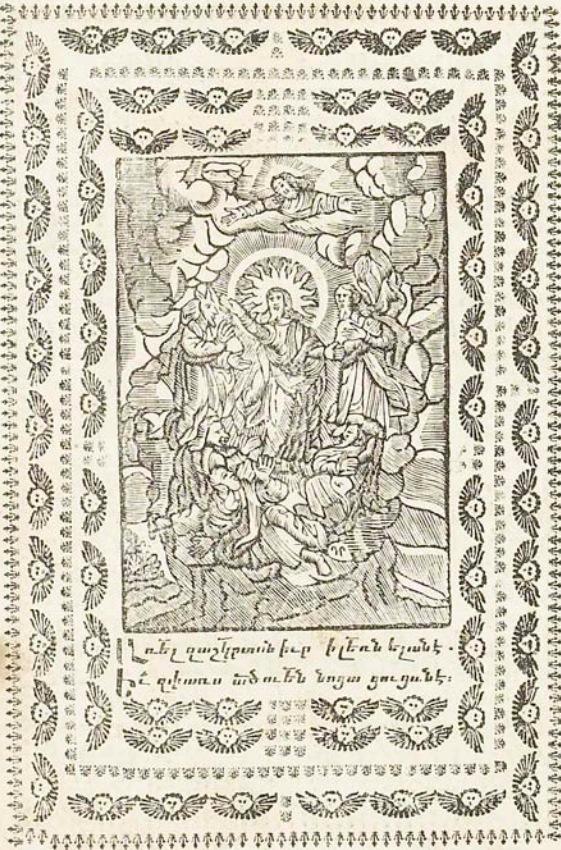 Առեալ զաշկերտսն իւր ի լեառն ելանէ.
Եւ զփառս ածուեն նոցա ցուցանէ։